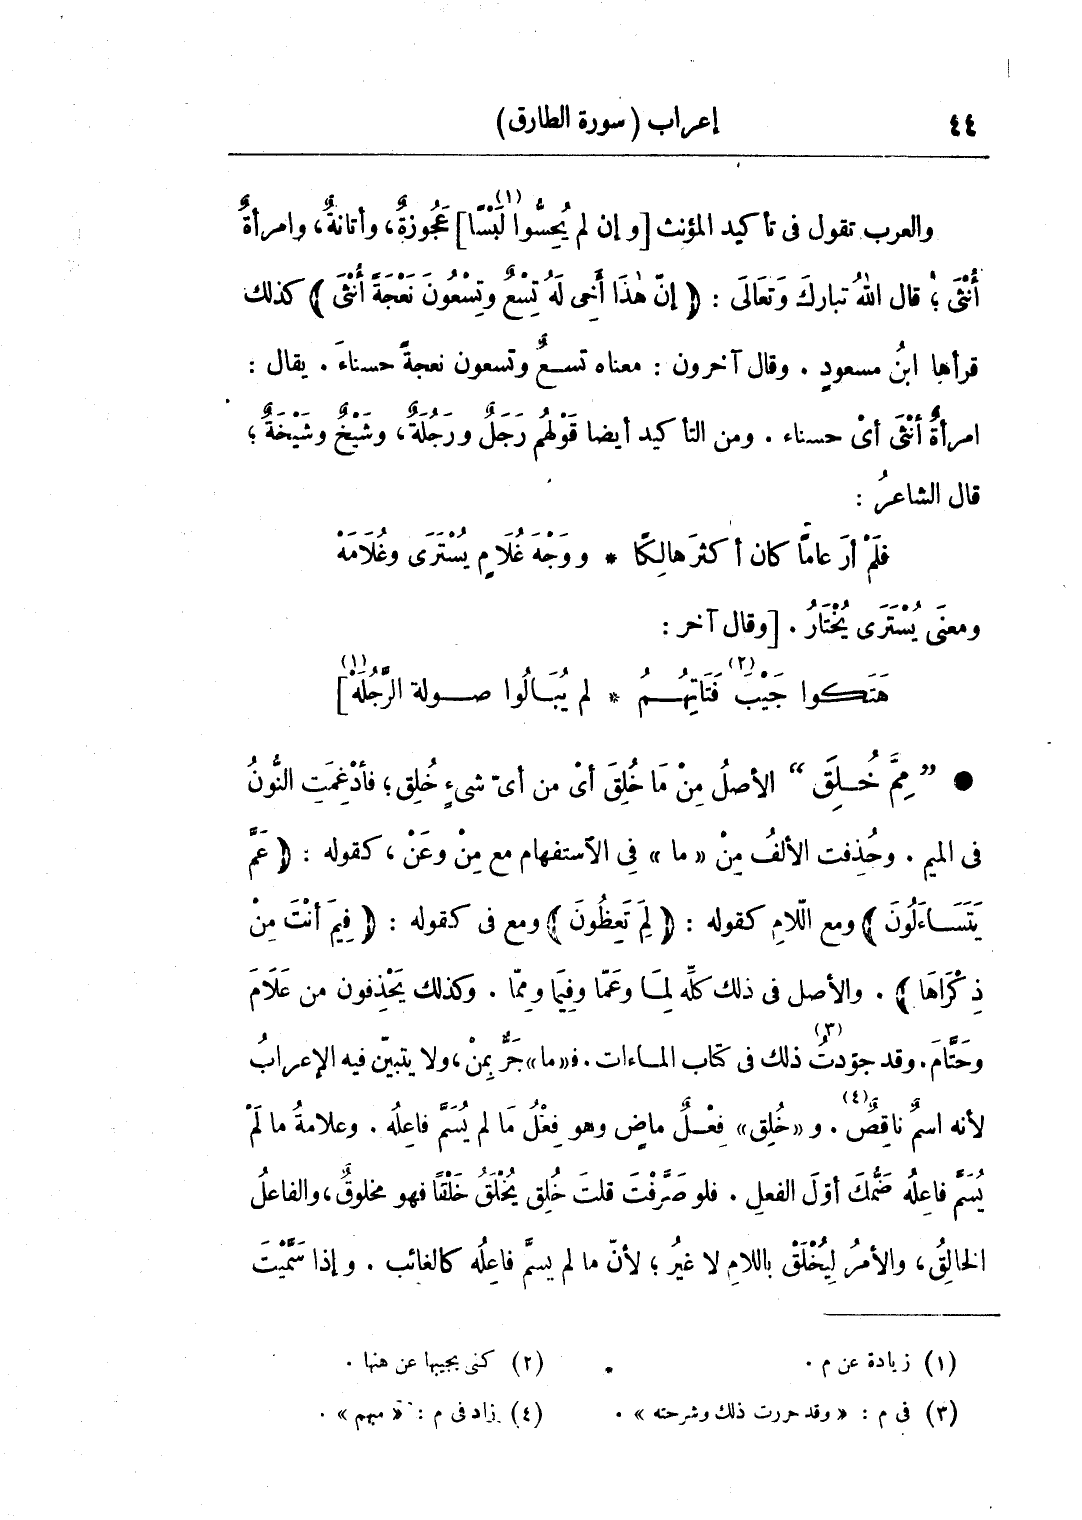 ٤٤ إعراب (سورة الطارق)
والعرب تقول فى تأكيد المؤنث [وإن لم يُحِسُّوا لَبْسًا](١) عَجُوزةٌ، وأتانةٌ، وامرأةٌ
أُنْثَى ؛ قال اللهُ تبارك وَتَعَالَى : ﴿ إنّ هٰذَا أَخِى لَهُ تِسْعٌ وتِسْعُونَ نَعْجَةً أُنْثَى ﴾ كذلك
قرأها ابنُ مسعودٍ . وقال آخرون : معناه تسعٌ وتسعون نعجةً حسناءَ . يقال :
امرأةٌ أنْثَى أىْ حسناء . ومن التأكيد أيضا قَوْلهُم رَجَلٌ ورَجُلَةٌ، وشَيْخٌ وشَيْخَةٌ ؛
قال الشاعرُ :
فلَمْ أرَ عامًّا كان أكثرَ هالِكًا * ووَجْهَ غُلَامٍ يُسْتَرَى وغُلَامَهْ
ومعنَى يُسْتَرَى يُخْتَارُ . [وقال آخر :
هَتَكوا جَيْبَ(٢) فَتَاتِهُمُ * لم يُبَالُوا صولة الرَّجُلَهْ](١)
● ” مِمَّ خُلِقَ “ الأصلُ مِنْ مَا خُلِقَ أىْ من أىّ شىءٍ خُلِق؛ فأدْغِمَتِ النُّونُ
فى الميم . وحُذِفت الألفُ مِنْ « ما » فِى الآستفهام مع مِنْ وعَنْ ، كقوله : ﴿ عَمَّ
يَتَسَاءَلُونَ ﴾ ومع اللّامِ كقوله : ﴿ لِمَ تَعِظُونَ ﴾ ومع فى كقوله : ﴿ فِيمَ أنْتَ مِنْ
ذِكْرَاهَا ﴾ . والأصل فى ذلك كلِّه لِمَا وعَمّا وفِيَما ومِمّا . وكذلك يَحْذِفون من عَلَامَ
وحَتَّامَ. وقد جوّدتُ(٣) ذلك فى كتاب الماءات . فـ«ما» جَرٌّ بِمِنْ، ولا يتبيّن فيه الإعرابُ
لأنه اسمٌ ناقِصٌ(٤) . و «خُلِق» فِعْلٌ ماضٍ وهو فِعْلُ مَا لم يُسَمَّ فاعِلُه . وعلامةُ ما لَمْ
يُسَمَّ فاعِلُه ضَمُّكَ أوّلَ الفعلِ . فلو صَرَّفْتَ قلتَ خُلِق يُخْلَقُ خَلْقًا فهو مخلوقٌ، والفاعلُ
الخالِقُ، والأمرُ لِيُخْلَقْ باللامِ لا غيرُ ؛ لأنّ ما لم يسمَّ فاعِلُه كالغائب . وإذا سَمَّيْتَ
(١) زيادة عن م . (٢) كنى بجيبها عن هنها .
(٣) فى م : « وقد حررت ذلك وشرحته » . (٤) زاد فى م : « مبهم » .